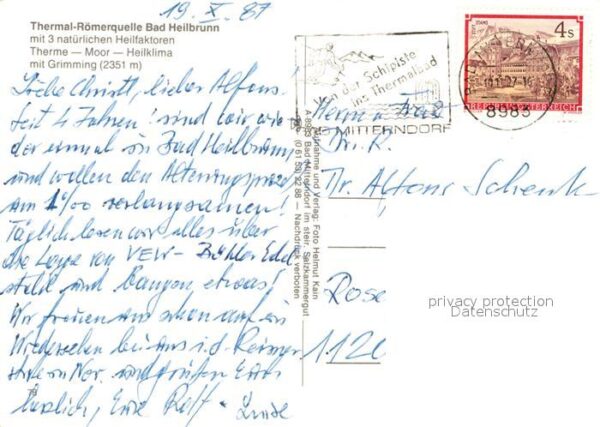 19. X. 87
Thermal-Römerquelle Bad Heilbrunn
mit 3 natürlichen Heilfaktoren
Therme — Moor — Heilklima
mit Grimming (2351 m)
Liebe Christl, lieber Alfons!
Seit 4 Jahren! sind wir wie-
der einmal in Bad Heilbrunn
und wollen den Alterungsprozeß
um 1% verlangsamen!
Täglich lesen wir alles über
die Lage von VEW- Böhler Edel
stahl und bangen etwas!
Wir freuen uns schon auf ein
Wiedersehen bei uns i. d. Reisner
in Nov. und grüßen Euch
herzlich, Eure Rolf +
Aufnahme und Verlag: Foto Helmut Kain
A-8983 Bad Mitterndorf im steir. Salzkammergut
(0 61 53) 22 88 — Nachdruck verboten
Von der Schipiste
ins Thermalbad
MITTERNDORF
4 S
REPUBLIK ÖSTERREICH
8983
Herrn
Dr. Alfons Schenk
Rose
1120
privacy protection
Datenschutz